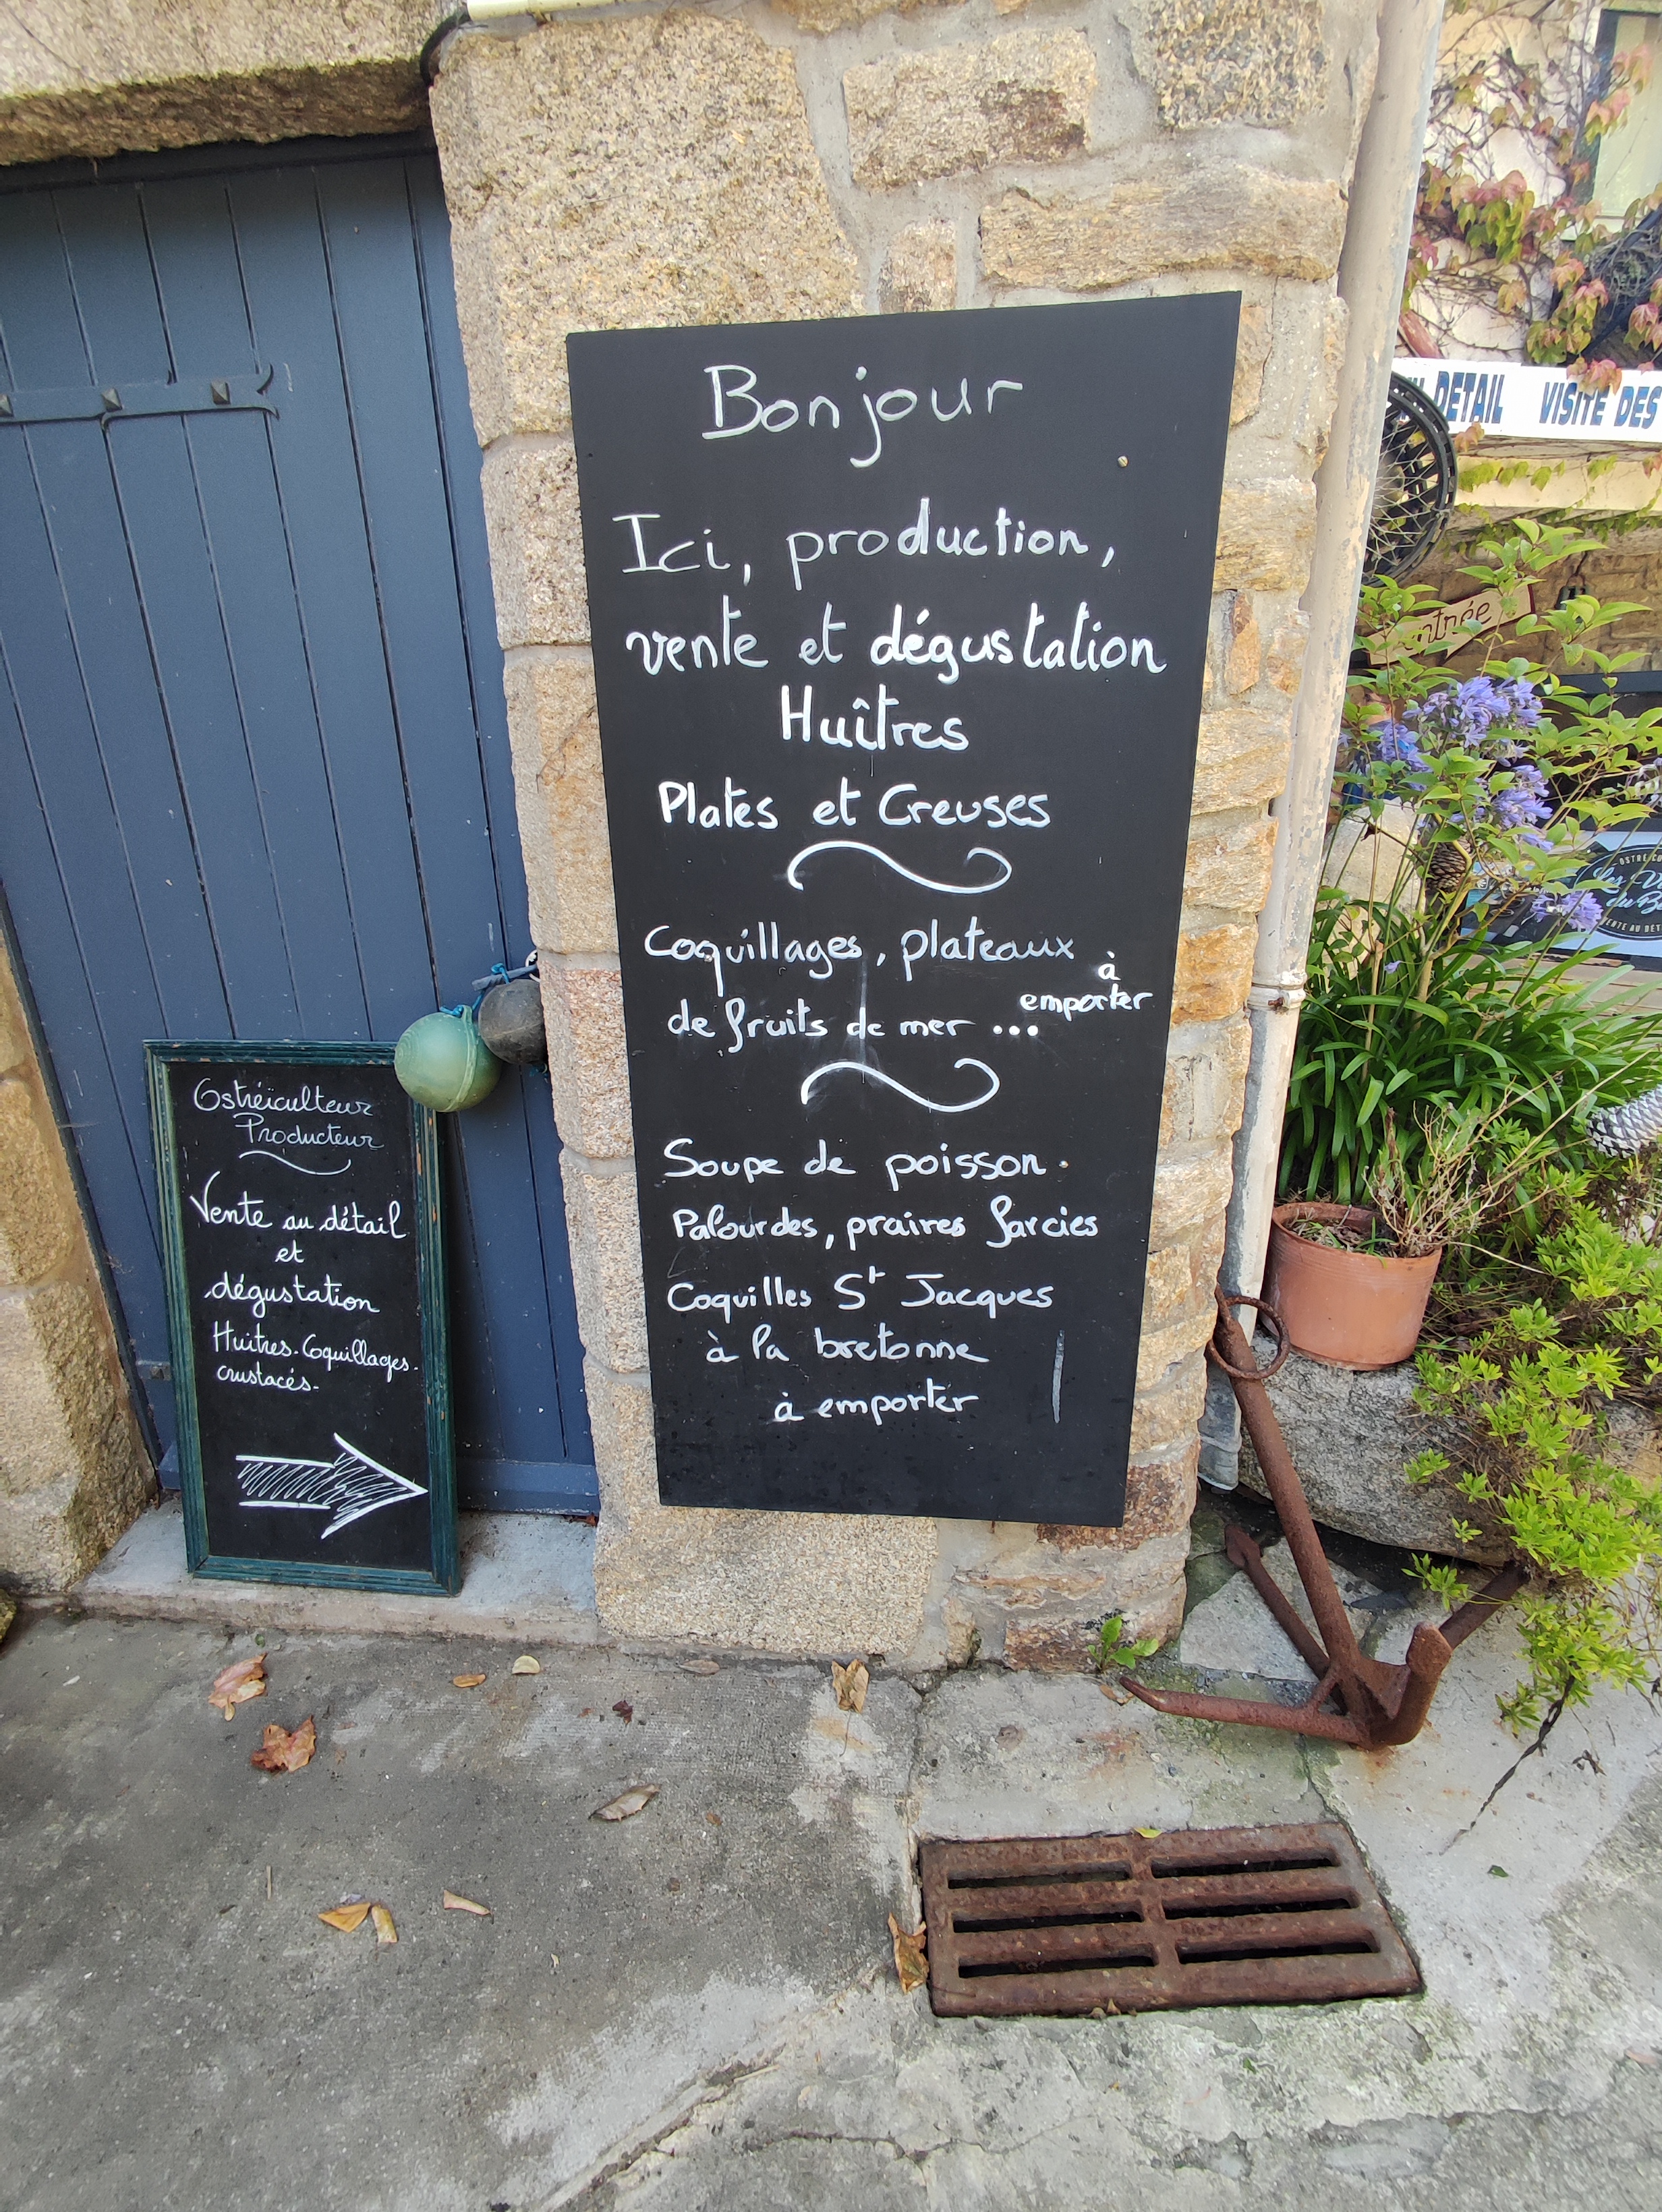 Bonjour
Ici, production,
vente et dégustation
Huîtres
Plates et Creuses
Coquillages, plateaux
de fruits de mer ... à emporter
Soupe de poisson.
Palourdes, praires farcies
Coquilles St Jacques
à la bretonne
à emporter
Ostréiculteur
Producteur
Vente au détail
et
dégustation
Huitres. Coquillages.
crustacés.
DETAIL VISITE DES
ntrée